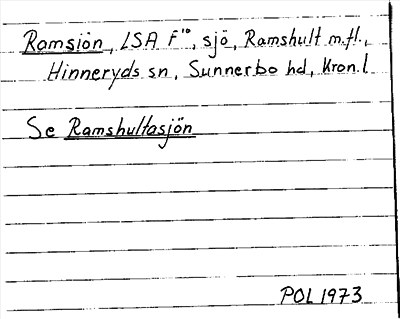 Ramsjön, LSA F¹⁰, sjö, Ramshult m.fl.,
Hinneryds sn, Sunnerbo hd, Kron.l
Se Ramshultasjön
POL 1973